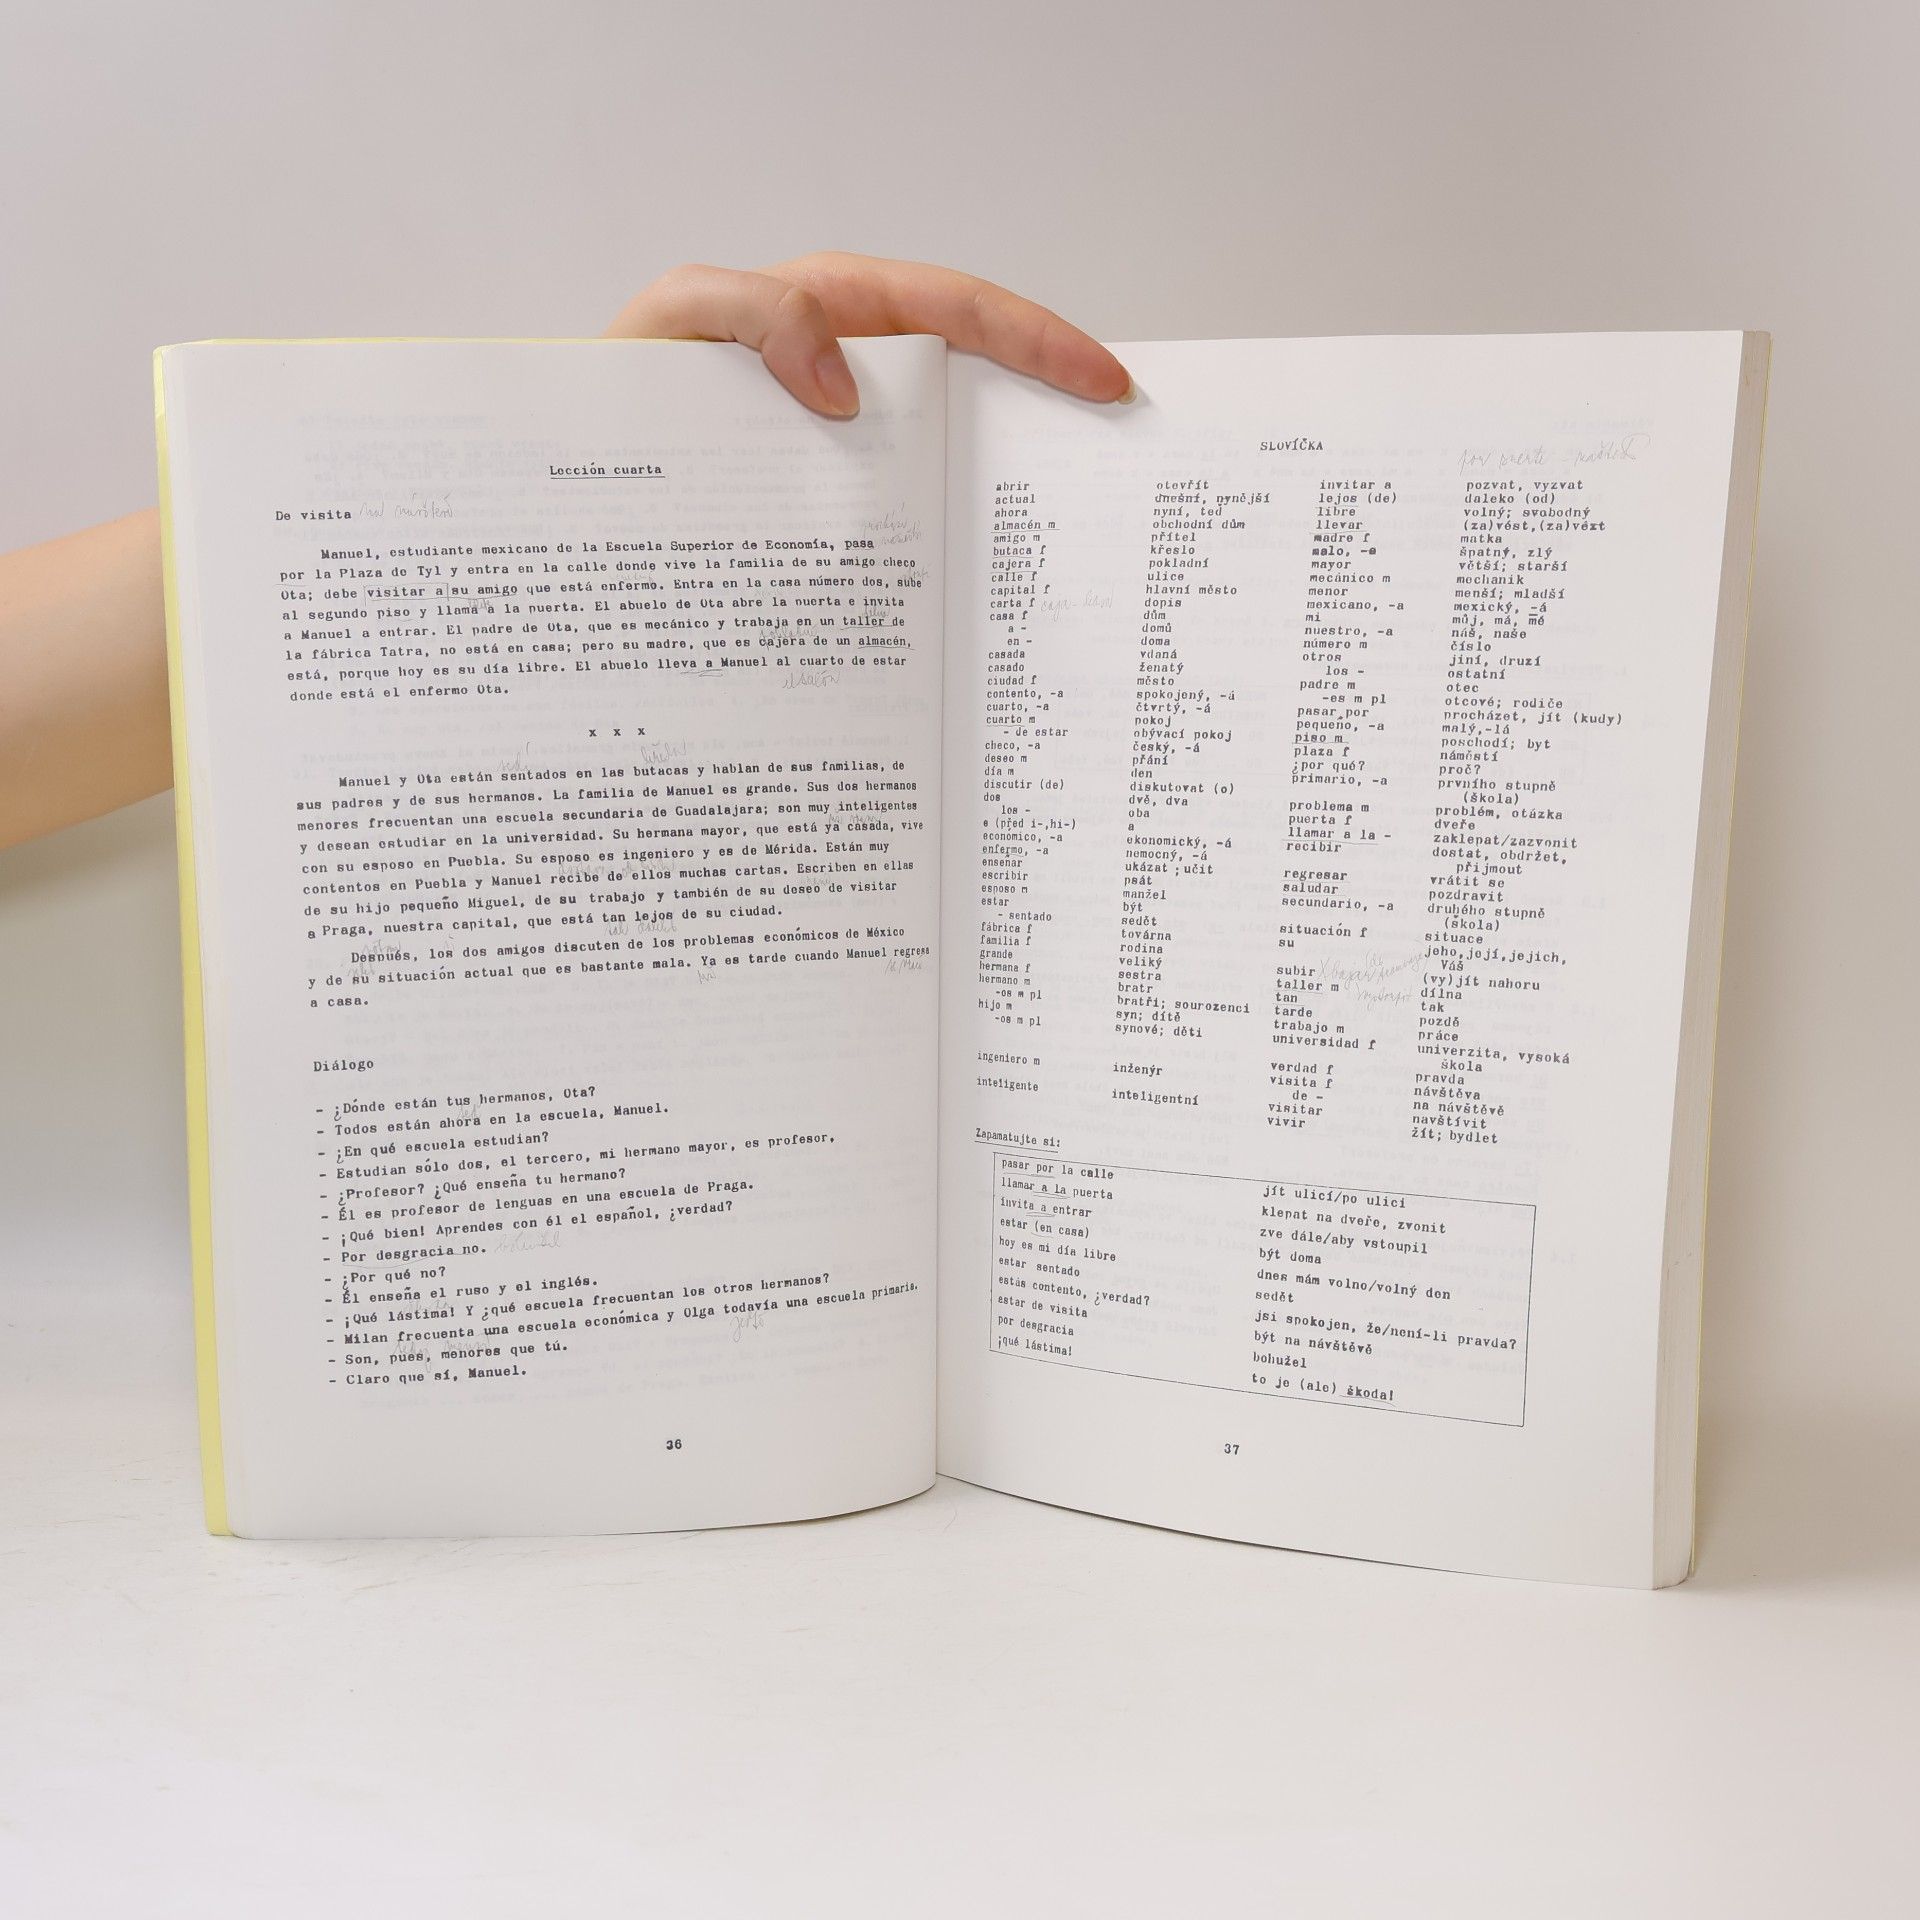 Lección cuarta
De visita
Manuel, estudiante mexicano de la Escuela Superior de Economía, pasa
por la Plaza de Tyl y entra en la calle donde vive la familia de su amigo checo
Ota; debe visitar a su amigo que está enfermo. Entra en la casa número dos, sube
al segundo piso y llama a la puerta. El abuelo de Ota abre la puerta e invita
a Manuel a entrar. El padre de Ota, que es mecánico y trabaja en un taller de
la fábrica Tatra, no está en casa; pero su madre, que es cajera de un almacén,
está, porque hoy es su día libre. El abuelo lleva a Manuel al cuarto de estar
el salón
donde está el enfermo Ota.
x x x
Manuel y Ota están sentados en las butacas y hablan de sus familias, de
sus padres y de sus hermanos. La familia de Manuel es grande. Sus dos hermanos
menores frecuentan una escuela secundaria de Guadalajara; son muy inteligentes
y desean estudiar en la universidad. Su hermana mayor, que está ya casada, vive
con su esposo en Puebla. Su esposo es ingeniero y es de Mérida. Están muy
contentos en Puebla y Manuel recibe de ellos muchas cartas. Escriben en ellas
de su hijo pequeño Miguel, de su trabajo y también de su deseo de visitar
a Praga, nuestra capital, que está tan lejos de su ciudad.
Después, los dos amigos discuten de los problemas económicos de México
y de su situación actual que es bastante mala. Ya es tarde cuando Manuel regresa
a casa.
Diálogo
- ¿Dónde están tus hermanos, Ota?
- Todos están ahora en la escuela, Manuel.
- ¿En qué escuela estudian?
- Estudian sólo dos, el tercero, mi hermano mayor, es profesor.
- ¿Profesor? ¿Qué enseña tu hermano?
- Él es profesor de lenguas en una escuela de Praga.
- ¡Qué bien! Aprendes con él el español, ¿verdad?
- Por desgracia no. bohužel
- ¿Por qué no?
- Él enseña el ruso y el inglés.
- ¡Qué lástima! Y ¿qué escuela frecuentan los otros hermanos?
- Milan frecuenta una escuela económica y Olga todavía una escuela primaria.
- Son, pues, menores que tú.
- Claro que sí, Manuel.
36
SLOVÍČKA
abrir otevřít
actual dnešní, nynější
ahora nyní, teď
almacén m obchodní dům
amigo m přítel
butaca f křeslo
cajera f pokladní
calle f ulice
capital f hlavní město
carta f dopis
casa f dům
a - domů
en - doma
casada vdaná
casado ženatý
ciudad f město
contento, -a spokojený, -á
cuarto, -a čtvrtý, -á
cuarto m pokoj
- de estar obývací pokoj
checo, -a český, -á
deseo m přání
día m den
discutir (de) diskutovat (o)
dos dvě, dva
los - oba
e (před i-,hi-) a
económico, -a ekonomický, -á
enfermo, -a nemocný, -á
enseñar ukázat ; učit
escribir psát
esposo m manžel
estar být
- sentado sedět
fábrica f továrna
familia f rodina
grande veliký
hermana f sestra
hermano m bratr
-os m pl bratři; sourozenci
hijo m syn; dítě
-os m pl synové; děti
ingeniero m inženýr
inteligente inteligentní
invitar a pozvat, vyzvat
lejos (de) daleko (od)
libre volný; svobodný
llevar (za)vést,(za)vézt
madre f matka
malo, -a špatný, zlý
mayor větší; starší
mecánico m mechanik
menor menší; mladší
mexicano, -a mexický, -á
mi můj, má, mé
nuestro, -a náš, naše
número m číslo
otros jiní, druzí
los - ostatní
padre m otec
-es m pl otcové; rodiče
pasar por procházet, jít (kudy)
pequeño, -a malý,-lá
piso m poschodí; byt
plaza f náměstí
¿por qué? proč?
primario, -a prvního stupně
(škola)
problema m problém, otázka
puerta f dveře
llamar a la - zaklepat/zazvonit
recibir dostat, obdržet,
přijmout
regresar vrátit se
saludar pozdravit
secundario, -a druhého stupně
(škola)
situación f situace
su jeho,její,jejich,
Váš
subir (vy)jít nahoru
taller m dílna
tan tak
tarde pozdě
trabajo m práce
universidad f univerzita, vysoká
škola
verdad f pravda
visita f návštěva
de - na návštěvě
visitar navštívit
vivir žít; bydlet
Zapamatujte si:
pasar por la calle jít ulicí/po ulici
llamar a la puerta klepat na dveře, zvonit
invita a entrar zve dále/aby vstoupil
estar (en casa) být doma
hoy es mi día libre dnes mám volno/volný den
estar sentado sedět
estás contento, ¿verdad? jsi spokojen, že/není-li pravda?
estar de visita být na návštěvě
por desgracia bohužel
¡qué lástima! to je (ale) škoda!
37